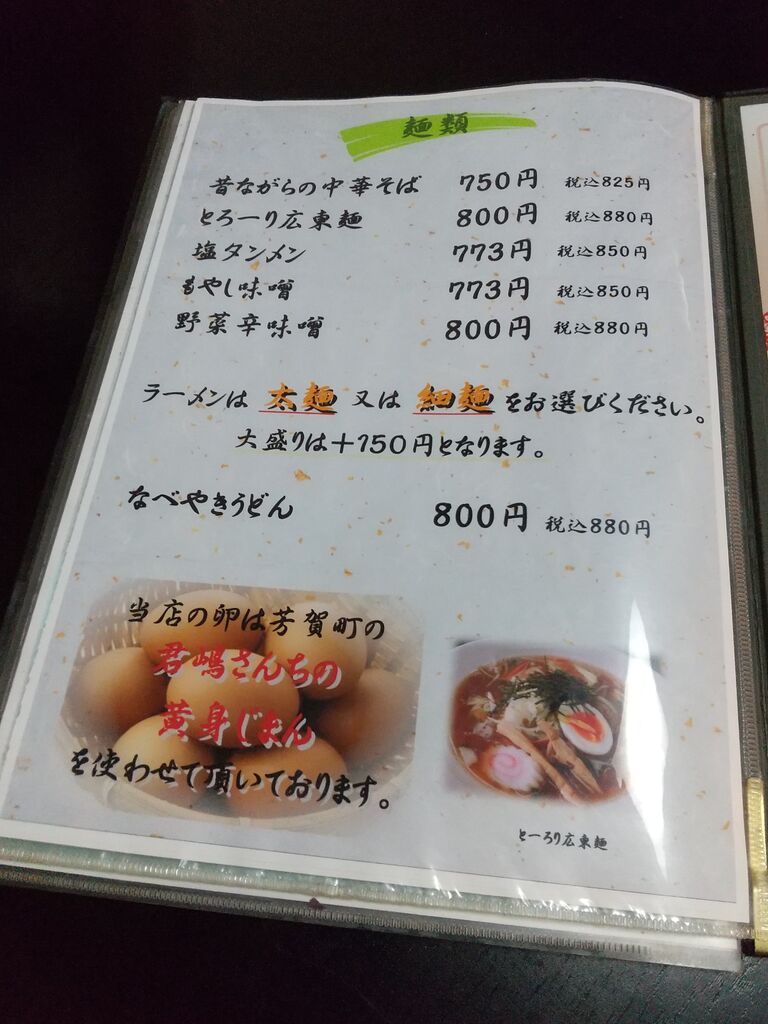 麺類
昔ながらの中華そば 750円 税込825円
とろーり広東麺 800円 税込880円
塩タンメン 773円 税込850円
もやし味噌 773円 税込850円
野菜辛味噌 800円 税込880円
ラーメンは 太麺 又は 細麺 をお選びください。
大盛りは+150円となります。
なべやきうどん 800円 税込880円
当店の卵は芳賀町の
君嶋さんちの
黄身じまん
を使わせて頂いております。
とーろり広東麺